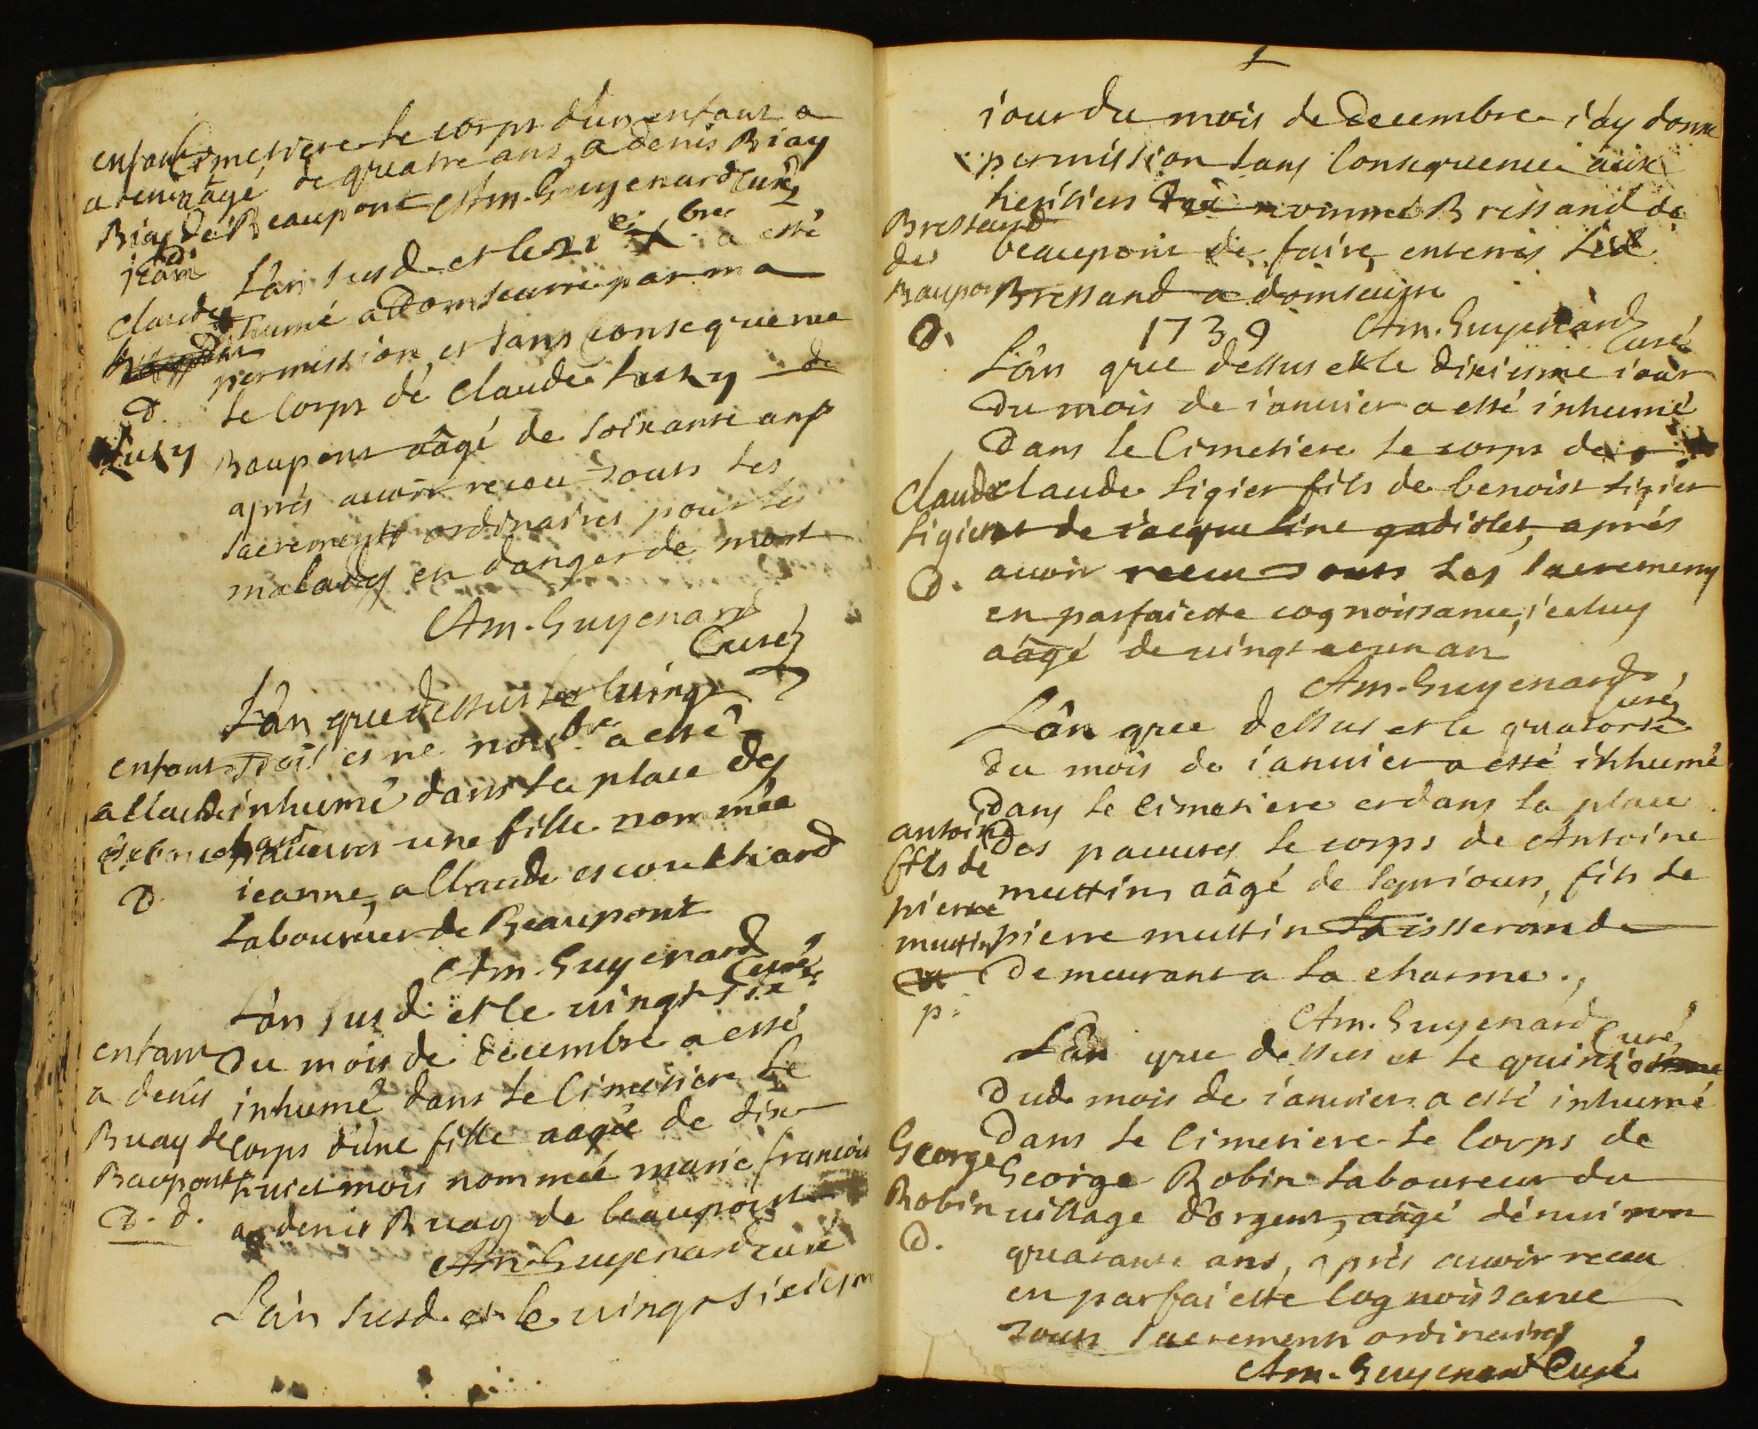 enfant Cimetiere le corps d'un enfant a
a denis aagé de quatre ans, a denis Biay
Biay de Beaupont Am. Guyenard Curé
D.
jean L'an susd. et le 21e xbre a esté
Claude inhumé a Domseure par ma
permission et sans consequence
D. le Corps de Claude Luzy de
Luzy Baupont aâgé de soixante ans
aprés auoir receu tous les
sacrements ordinaires pour les
malades en danger de mort
Am. Guyenard
Curé
L'an que dessus et le uingt
enfant trois et ne noubre a esté
a Claude inhumé dans la place des
pauures une fille nommée
D. jeanne, a Claude escoukhard
Laboureur de Beaupont
Am. Guyenard
Curé
L'an susd. et le uingt six
enfant Du mois de decembre a esté
a denis inhumé dans le Cimetiere le
Buay de corps d'une fille aagée de dix
Baupont huict mois nommée marie francoise
D. d. a denis Buay de beaupont
Am. Guyenard Curé
L'an susd. et le uingt sixiesm
jour du mois de Decembre i'ay donne
permission sans Consequence aux
heritiers nommé Bressand de
Bressand
de beaupont de faire enterrer led.
Baupont Bressand a domseure
D. 1739 Am. Guyenard
Curé
L'an que dessus et le dixiesme iour
du mois de ianuier a esté inhumé
Dans le Cimetiere le corps de
Claude claude Ligier fils de benoist Ligier
Ligier et de iacqueline gadiolet, aprés
D. auoir receu tous les sacremens
en parfaicte cognoissance, iceluy
aâgé de uingt et un an
Am. Guyenard
Curé
L'an que dessus et le quatorse
du mois de ianuier a esté inhumé
dans le cimetiere et dans la place
antoine Des pauures le corps de Antoine
fils de muttin aâgé de sept iours, fils de
pierre
muttin pierre muttin tisserand
demeurant a la charme.
p.
Am. Guyenard
Curé
L'an que dessus et le quinziesme
Dud. mois de ianuier a esté inhumé
Dans le Cimetiere le Corps de
George George Robin Laboureur du
Robin uillage d'orgent, aâgé d'enuiron
D. quarante ans, aprés auoir receu
en parfaicte Cognoissance
tous sacremens ordinaires
Am. Guyenard Curé